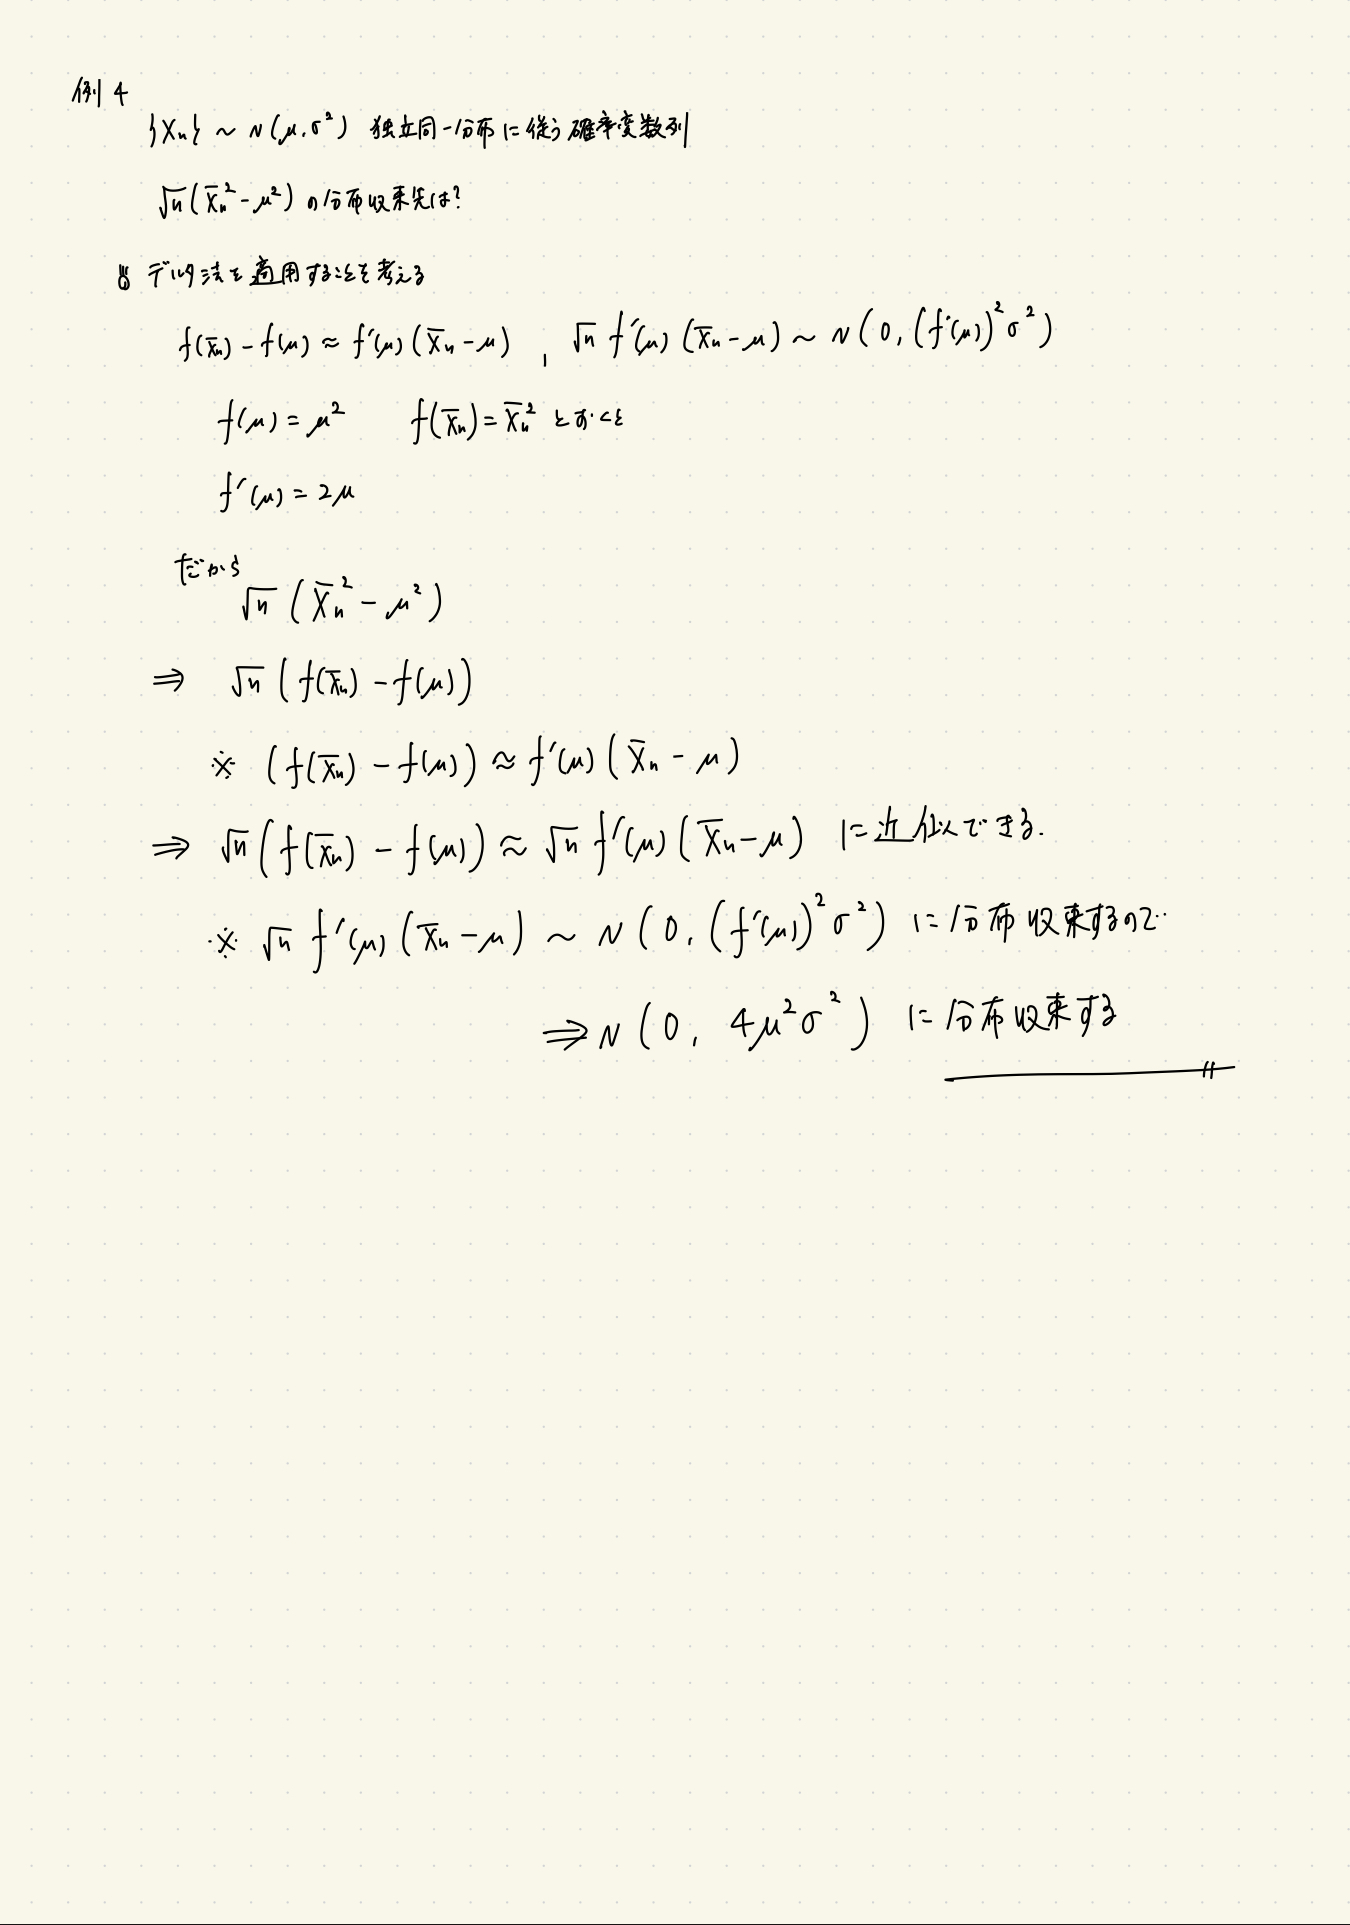 例4
{Xn} ~ N(μ, σ²) 独立同一分布に従う確率変数列
√n(X̄n² - μ²) の分布収束先は?
デルタ法を適用することを考える
f(X̄n) - f(μ) ≈ f'(μ)(X̄n - μ) , √n f'(μ)(X̄n - μ) ~ N(0, (f'(μ))²σ²)
f(μ) = μ² f(X̄n) = X̄n² とおくと
f'(μ) = 2μ
だから
√n (X̄n² - μ²)
⇒ √n (f(X̄n) - f(μ))
※ (f(X̄n) - f(μ)) ≈ f'(μ)(X̄n - μ)
⇒ √n (f(X̄n) - f(μ)) ≈ √n f'(μ)(X̄n - μ) に近似できる.
※ √n f'(μ)(X̄n - μ) ~ N(0, (f'(μ))²σ²) に分布収束するので
⇒ N(0, 4μ²σ²) に分布収束する